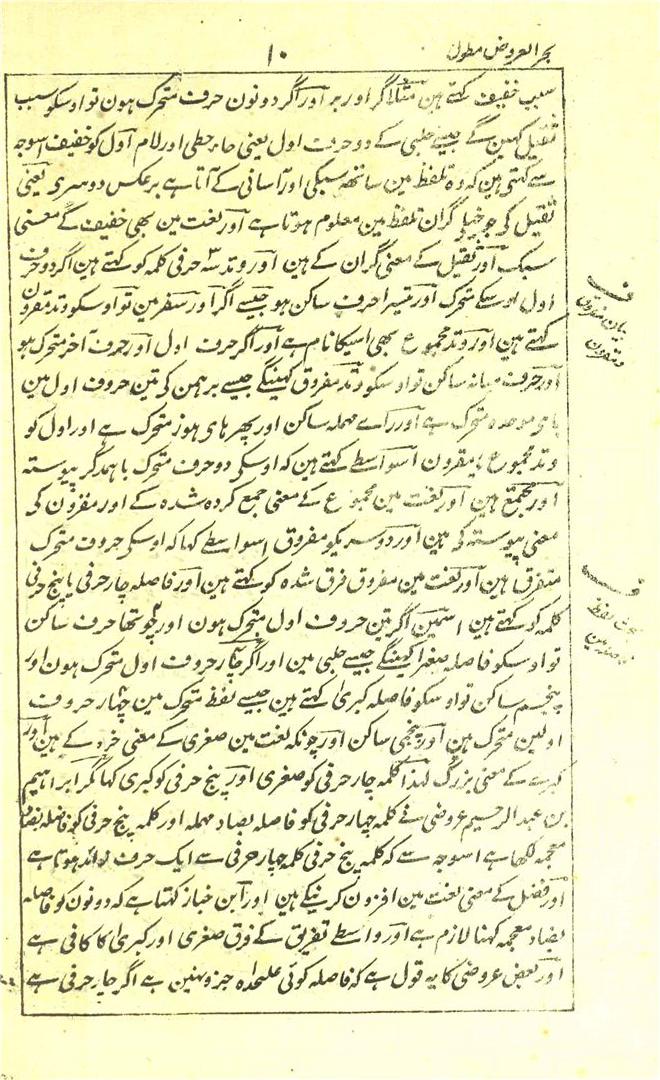 بحر العروض مطول
۱۰
سبب خفیف کہتے ہین مثلاً گر اور بر اور اگر دونون حرف متحرک ہون تو اوسکو سبب
ثقیل کہین گے جیسے حلبی کے دو حرف اول یعنی حاء حطی اور لام اول کو خفیف اسوجہ
سے کہتی ہین کہ وہ تلفظ مین ساتھ سبکی اور آسانی کے آتا ہے برعکس دوسری یعنی
ثقیل کی جو گران تلفظ مین معلوم ہوتا ہے اور لغت مین بھی خفیف کے معنی
سبک اور ثقیل کے معنی گران کے ہین اور وتد سہ حرفی کلمہ کو کہتے ہین اگر دو حرف
اول اوسکے متحرک اور تیسرا حرف ساکن ہو جیسے اگر اور سفر مین تو اوسکو وتد مقرون
کہتے ہین اور وتد مجموع بھی اسیکا نام ہے اور اگر حرف اول اور حرف آخر متحرک ہو
اور حرف میانہ ساکن تو اوسکو وتد مفروق کہینگے جیسے برہمن کی تین حروف اول مین
بای موحدہ متحرک ہے اور راے مہملہ ساکن اور پھر ہای ہوز متحرک ہے اور اول کو
وتد مجموع یا مقرون اسواسطے کہتے ہین کہ اوسکی دو حرف متحرک باہمدگر پیوستہ
اور مجتمع ہین اور لغت مین مجموع کے معنی جمع کردہ شدہ کے اور مقرون کی
معنی پیوستہ کی ہین اور دوسریکو مفروق اسواسطے کہا کہ اوسکی حروف متحرک
متفرق ہین اور لغت مین مفروق فرق شدہ کو کہتے ہین اور فاصلہ چار حرفی یا پنج حرفی
کلمہ کو کہتے ہین اسمین اگر تین حروف اول متحرک ہون اور چوتھا حرف ساکن
تو اوسکو فاصلہ صغرا کہینگے جیسے حلبی مین اور اگر چار حروف اول متحرک ہون اور
پنجم ساکن تو اوسکو فاصلہ کبریٰ کہتے ہین جیسے لفظ متحرک مین چہار حروف
اولین متحرک ہین اور پنجمی ساکن اور چونکہ لغت مین صغری کے معنی خرد کے ہین اور
کبرے کے معنی بزرگ لہذا کلمہ چار حرفی کو صغری اور پنج حرفی کو کبری کہا مگر ابراہیم
بن عبدالرحیم عروضی نے کلمہ چہار حرفی کو فاصلہ بصاد مہملہ اور کلمہ پنج حرفی کو فاضلہ بضاد
معجمہ لکھا ہے اسوجہ سے کہ کلمہ پنج حرفی کلمہ چہار حرفی سے ایک حرف زائد ہوتا ہے
اور فضل کے معنی لغت مین افزون کرنیکے ہین اور ابن خباز کہتا ہے کہ دونون کو فاضلہ
بضاد معجمہ کہنا لازم ہے اور واسطے تفریق کے فرق صغری اور کبریٰ کا کافی ہے
اور بعض عروضی کا یہ قول ہے کہ فاصلہ کوئی علیحدہ جزو نہین ہے اگر چار حرفی ہے
ف
بیان مفروق
و مقرون
ف
بحث لفظ